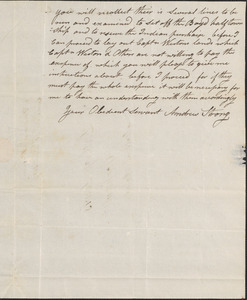 you will recollect there is several lines to be
run and examined to set off the Boyd half town
Ship and to resurv the Indian purchase before I
can proceed to lay out Capt Wistons lands which
Capt Wiston & Others are not willing to pay the
expense of which you will please to give me
instructions about before I proceed for if they
must pay the whole expense it will be necessary for
me to have an understanding with them accordingly
Your Obedient Servant Andrew Strong